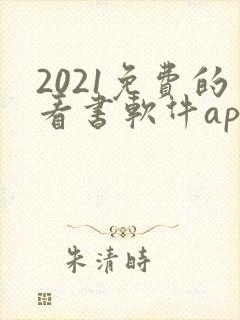 2021免費的
看書軟件ap
朱清時